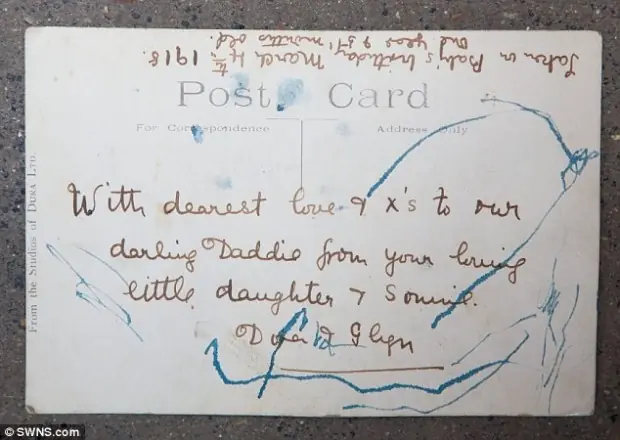 Taken on Baby's birthday March 4th, 1918.
One year & months old.
Post Card
For Correspondence Address Only
With dearest love & x's to our
darling Daddie from your loving
little daughter & Sonnie.
Dora & Glyn
From the Studios of DURA LTD.
© SWNS.com